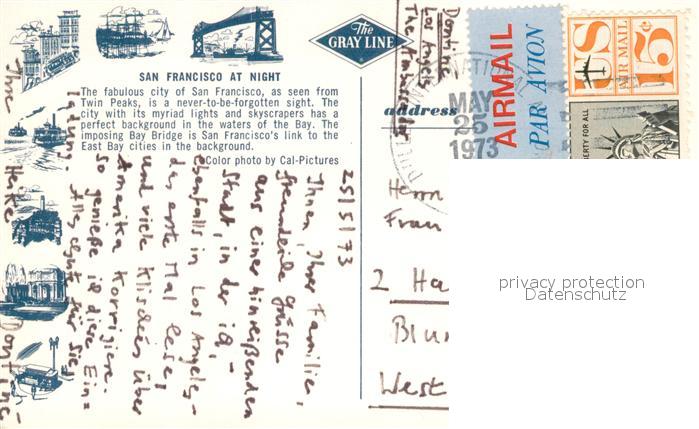 The
GRAY LINE
SAN FRANCISCO AT NIGHT
The fabulous city of San Francisco, as seen from
Twin Peaks, is a never-to-be-forgotten sight. The
city with its myriad lights and skyscrapers has a
perfect background in the waters of the Bay. The
imposing Bay Bridge is San Francisco's link to the
East Bay cities in the background.
Color photo by Cal-Pictures
25/5/73
Ihnen, Ihrer Familie,
freundliche Grüsse
aus einer hinreißenden
Stadt, in der ich,-
ebenfalls in Los Angeles-
das erste Mal lese,
und viele Klischees über
Amerika korrigiere.
So genieße ich diese Ein=
Alles gute für Sie,
Ihre Heike Doutiné
Doutiné
Los Angeles
The Ambassador
address
MAY
25
1973
AIRMAIL
PAR AVION
US
AIR MAIL
15¢
LIBERTY FOR ALL
Herrn
Frau
2 Ha
West
privacy protection
Datenschutz